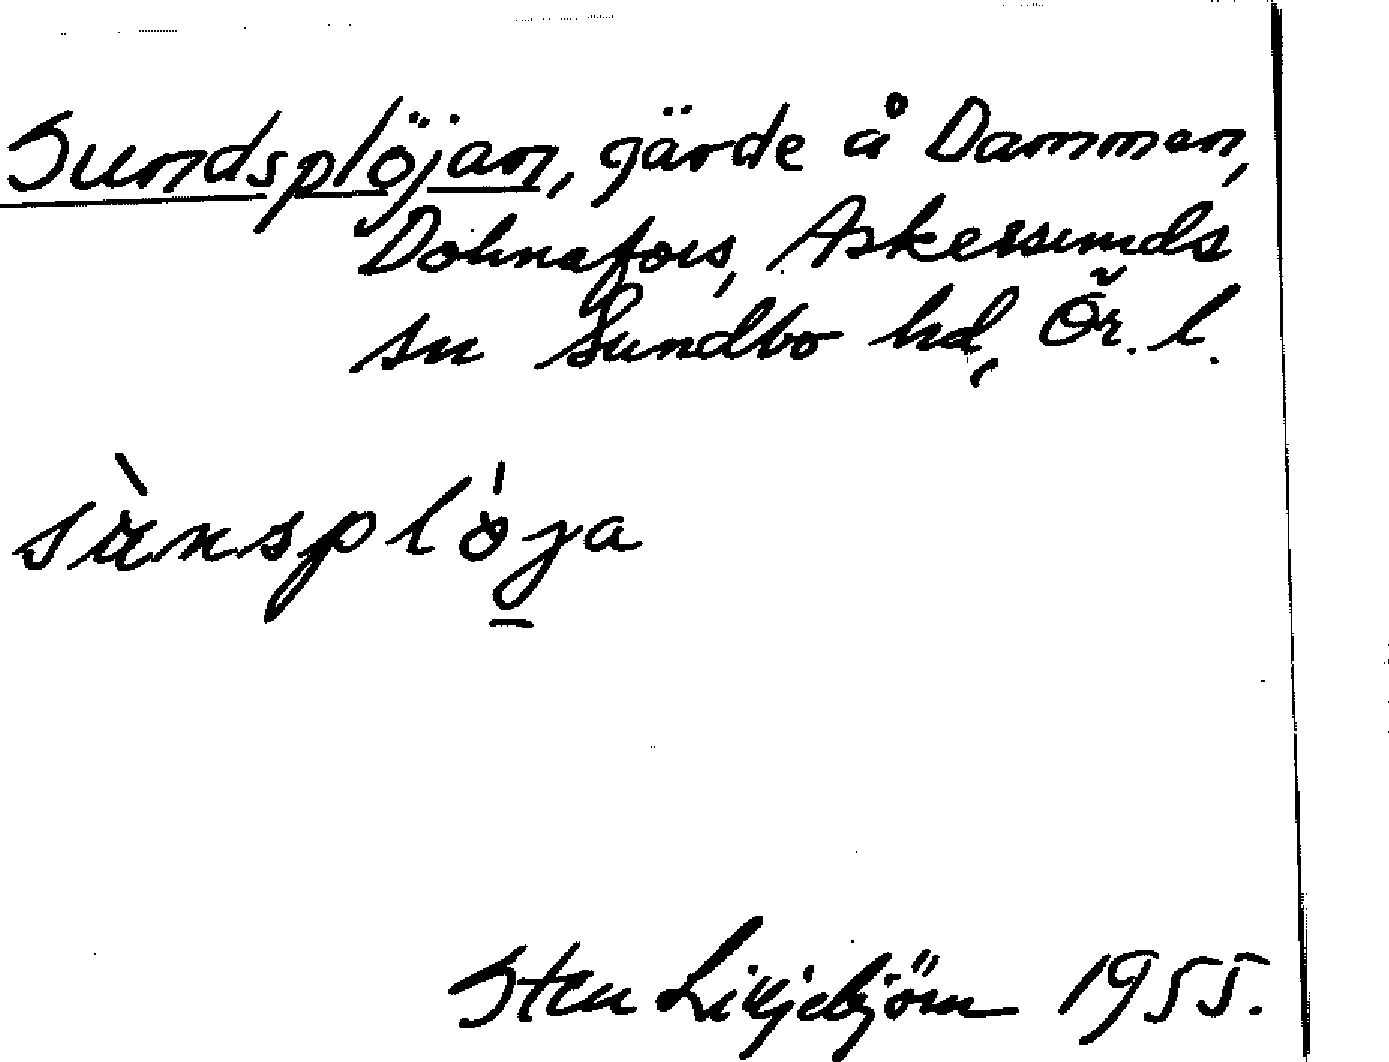 Sundsplöjan, gärde å Dammen,
Dohnafors, Askersunds
sn Sundbo hd, Ör. l.
sùnsplöja
Sten Liljebjörn 1955.